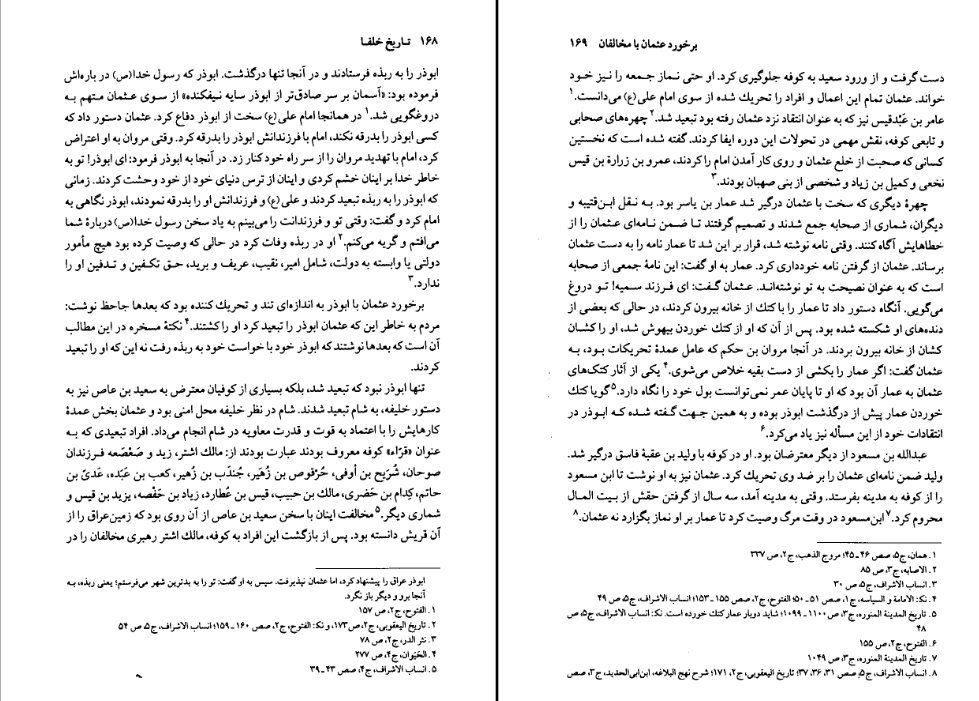 ۱۶۸ تاریخ خلفا
ابوذر را به ربذه فرستادند و در آنجا تنها درگذشت. ابوذر که رسول خدا(ص) در باره‌اش
فرموده بود: «آسمان بر سر صادق‌تر از ابوذر سایه نیفکنده» از سوی عثمان متهم به
دروغگویی شد.۱ در همانجا امام علی(ع) سخت از ابوذر دفاع کرد. عثمان دستور داد که
کسی ابوذر را بدرقه نکند، امام با فرزندانش ابوذر را بدرقه کرد. وقتی مروان به او اعتراض
کرد، امام با تهدید مروان را از سر راه خود کنار زد. در آنجا به ابوذر فرمود: ای ابوذر! تو به
خاطر خدا بر اینان خشم کردی و اینان از ترس دنیای خود از خود وحشت کردند. زمانی
که ابوذر را به ربذه تبعید کردند و علی(ع) و فرزندانش او را بدرقه نمودند، ابوذر نگاهی به
امام کرد و گفت: وقتی تو و فرزندانت را می‌بینم به یاد سخن رسول خدا(ص) دربارهٔ شما
می‌افتم و گریه می‌کنم.۲ او در ربذه وفات کرد در حالی که وصیت کرده بود هیچ مأمور
دولتی یا وابسته به دولت، شامل امیر، نقیب، عریف و برید، حق تکفین و تدفین او را
ندارد.۳
برخورد عثمان با ابوذر به اندازه‌ای تند و تحریک کننده بود که بعدها جاحظ نوشت:
مردم به خاطر این که عثمان ابوذر را تبعید کرد او را کشتند.۴ نکتهٔ مسخره در این مطالب
آن است که بعدها نوشتند که ابوذر خود با خواست خود به ربذه رفت نه این که او را تبعید
کردند.
تنها ابوذر نبود که تبعید شد، بلکه بسیاری از کوفیان معترض به سعید بن عاص نیز به
دستور خلیفه، به شام تبعید شدند. شام در نظر خلیفه محل امنی بود و عثمان بخش عمدهٔ
کارهایش را با اعتماد به قوت و قدرت معاویه در شام انجام می‌داد. افراد تبعیدی که به
عنوان «قرّاء» کوفه معروف بودند عبارت بودند از: مالک اشتر، زید و صَعْصَعه فرزندان
صوحان، شُرَیح بن أوفی، حُرْقوص بن زُهَیر، جُندَب بن زُهیر، کعب بن عَبْده، عَدیّ بن
حاتم، کِدام بن حَضْری، مالک بن حبیب، قیس بن عُطارد، زیاد بن حَفْصه، یزید بن قیس و
شماری دیگر.۵ مخالفت اینان با سخن سعید بن عاص از آن روی بود که زمین عراق را از
آن قریش دانسته بود. پس از بازگشت این افراد به کوفه، مالک اشتر رهبری مخالفان را در
ابوذر عراق را پیشنهاد کرد، اما عثمان نپذیرفت. سپس به او گفت: تو را به بدترین شهر می‌فرستم؛ یعنی ربذه، به
آنجا برو و دیگر باز نگرد.
۱. الفتوح، ج۲، ص ۱۵۷
۲. تاریخ الیعقوبی، ج۲، ص۱۷۳، و نکـ: الفتوح، ج۲، صص ۱۶۰ ـ ۱۵۹؛ انساب الاشراف، ج۵، ص ۵۴
۳. نثر الدر، ج۲، ص ۷۸
۴. الحَیَوان، ج۴، ص ۲۷۷
۵. انساب الاشراف، ج۴، صص ۴۳ ـ ۳۹
برخورد عثمان با مخالفان ۱۶۹
دست گرفت و از ورود سعید به کوفه جلوگیری کرد. او حتی نماز جمعه را نیز خود
خواند. عثمان تمام این اعمال و افراد را تحریک شده از سوی امام علی(ع) می‌دانست.۱
عامر بن عَبْدقیس نیز که به عنوان انتقاد نزد عثمان رفته بود تبعید شد.۲ چهره‌های صحابی
و تابعی کوفه، نقش مهمی در تحولات این دوره ایفا کردند. گفته شده است که نخستین
کسانی که صحبت از خلع عثمان و روی کار آمدن امام را کردند، عمرو بن زرارة بن قیس
نخعی و کمیل بن زیاد و شخصی از بنی صهبان بودند.۳
چهرهٔ دیگری که سخت با عثمان درگیر شد عمار بن یاسر بود. به نقل ابن‌قتیبه و
دیگران، شماری از صحابه جمع شدند و تصمیم گرفتند تا ضمن نامه‌ای عثمان را از
خطاهایش آگاه کنند. وقتی نامه نوشته شد، قرار بر این شد تا عمار نامه را به دست عثمان
برساند. عثمان از گرفتن نامه خودداری کرد. عمار به او گفت: این نامهٔ جمعی از صحابه
است که به عنوان نصیحت به تو نوشته‌اند. عثمان گفت: ای فرزند سمیه! تو دروغ
می‌گویی. آنگاه دستور داد تا عمار را با کتک از خانه بیرون کردند، در حالی که بعضی از
دنده‌های او شکسته شده بود. پس از آن که او از کتک خوردن بیهوش شد، او را کشان
کشان از خانه بیرون بردند. در آنجا مروان بن حکم که عامل عمدهٔ تحریکات بود، به
عثمان گفت: اگر عمار را بکشی از دست بقیه خلاص می‌شوی.۴ یکی از آثار کتک‌های
عثمان به عمار آن بود که او تا پایان عمر نمی‌توانست بول خود را نگاه دارد.۵ گویا کتک
خوردن عمار پیش از درگذشت ابوذر بوده و به همین جهت گفته شده که ابوذر در
انتقادات خود از این مسأله نیز یاد می‌کرد.۶
عبدالله بن مسعود از دیگر معترضان بود. او در کوفه با ولید بن عقبهٔ فاسق درگیر شد.
ولید ضمن نامه‌ای عثمان را بر ضد وی تحریک کرد. عثمان نیز به او نوشت تا ابن مسعود
را از کوفه به مدینه بفرستد. وقتی به مدینه آمد، سه سال از گرفتن حقش از بیت المال
محروم کرد.۷ ابن‌مسعود در وقت مرگ وصیت کرد تا عمار بر او نماز بگزارد نه عثمان.۸
۱. همان، ج۵، صص ۴۶ ـ ۴۵؛ مروج الذهب، ج۲، ص ۳۳۷
۲. الاصابه، ج۳، ص ۸۵
۳. انساب الاشراف، ج۵، ص ۳۰
۴. نکـ: الامامة و السیاسه، ج۱، صص ۵۱ ـ ۵۰؛ الفتوح، ج۲، صص ۱۵۵ ـ ۱۵۳؛ انساب الاشراف، ج۵، ص ۴۹
۵. تاریخ المدینة المنوره، ج۳، ص ۱۱۰۰ ـ ۱۰۹۹؛ شاید دوبار عمار کتک خورده است. نکـ: انساب الاشراف، ج۵، ص
۴۸
۶. الفتوح، ج۲، ص ۱۵۵
۷. تاریخ المدینة المنوره، ج۳، ص ۱۰۴۹
۸. انساب الاشراف، ج۵، صص ۳۱، ۳۶، ۳۷؛ تاریخ الیعقوبی، ج۲، ۱۷۱؛ شرح نهج البلاغه، ابن‌ابی‌الحدید، ج۳، صص